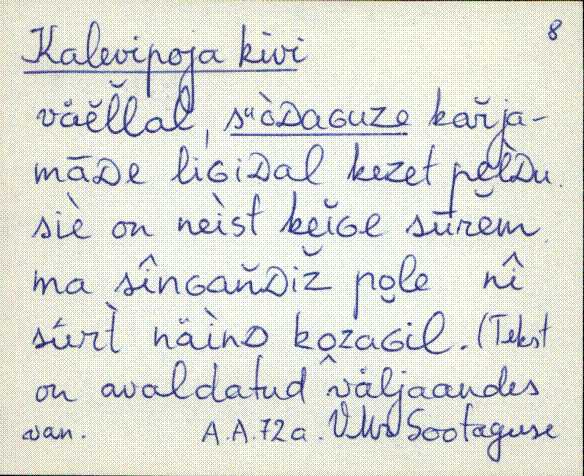 8
Kalevipoja kivi
väĕl̆lal, suòᴅaɢuze kar̆ja-
māᴅe liɢiᴅal kezet pè̮lᴅu.
siè on neìst kĕ̮iɢe sūrĕm
ma sînɢan̆ᴅiž po̮le nî
sūrt̀ näìnᴅ ko̮zaɢil. (Tekst
on avaldatud väljaandes
van. A.A.72a. Sootaguse